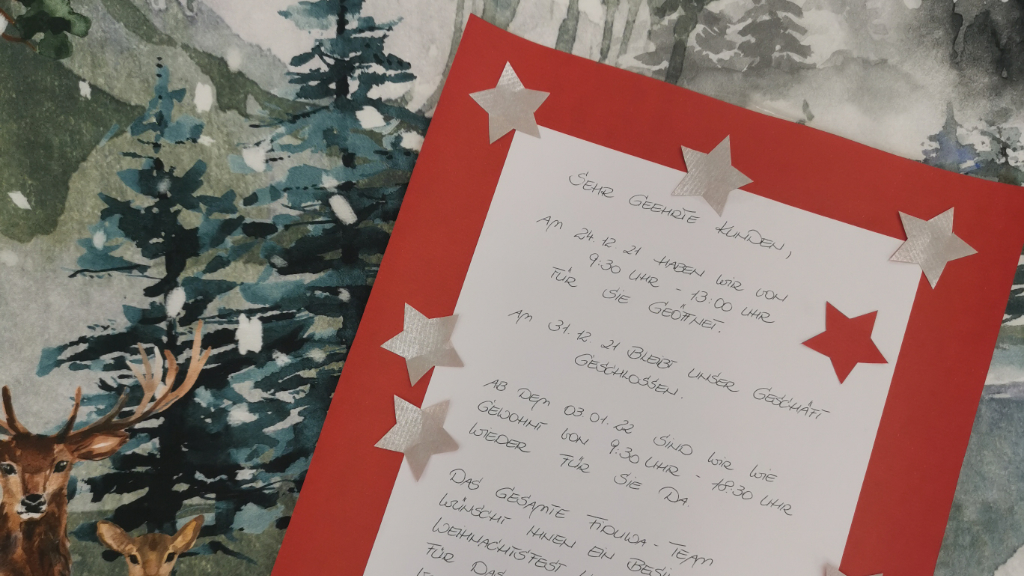 SEHR GEEHRTE KUNDEN,
AM 24.12.21 HABEN WIR VON
9:30 UHR - 13:00 UHR
FÜR SIE GEÖFFNET.
AM 31.12.21 BLEIBT UNSER GESCHÄFT
GESCHLOSSEN.
AB DEM 03.01.22 SIND WIR WIE
GEWOHNT VON 9:30 UHR - 18:30 UHR
WIEDER FÜR SIE DA.
DAS GESAMTE FIDUWA-TEAM
WÜNSCHT IHNEN EIN
WEIHNACHTSFEST
FÜR DAS